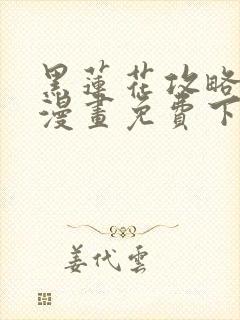 黑蓮花攻略
漫畫免費下
姜代雲